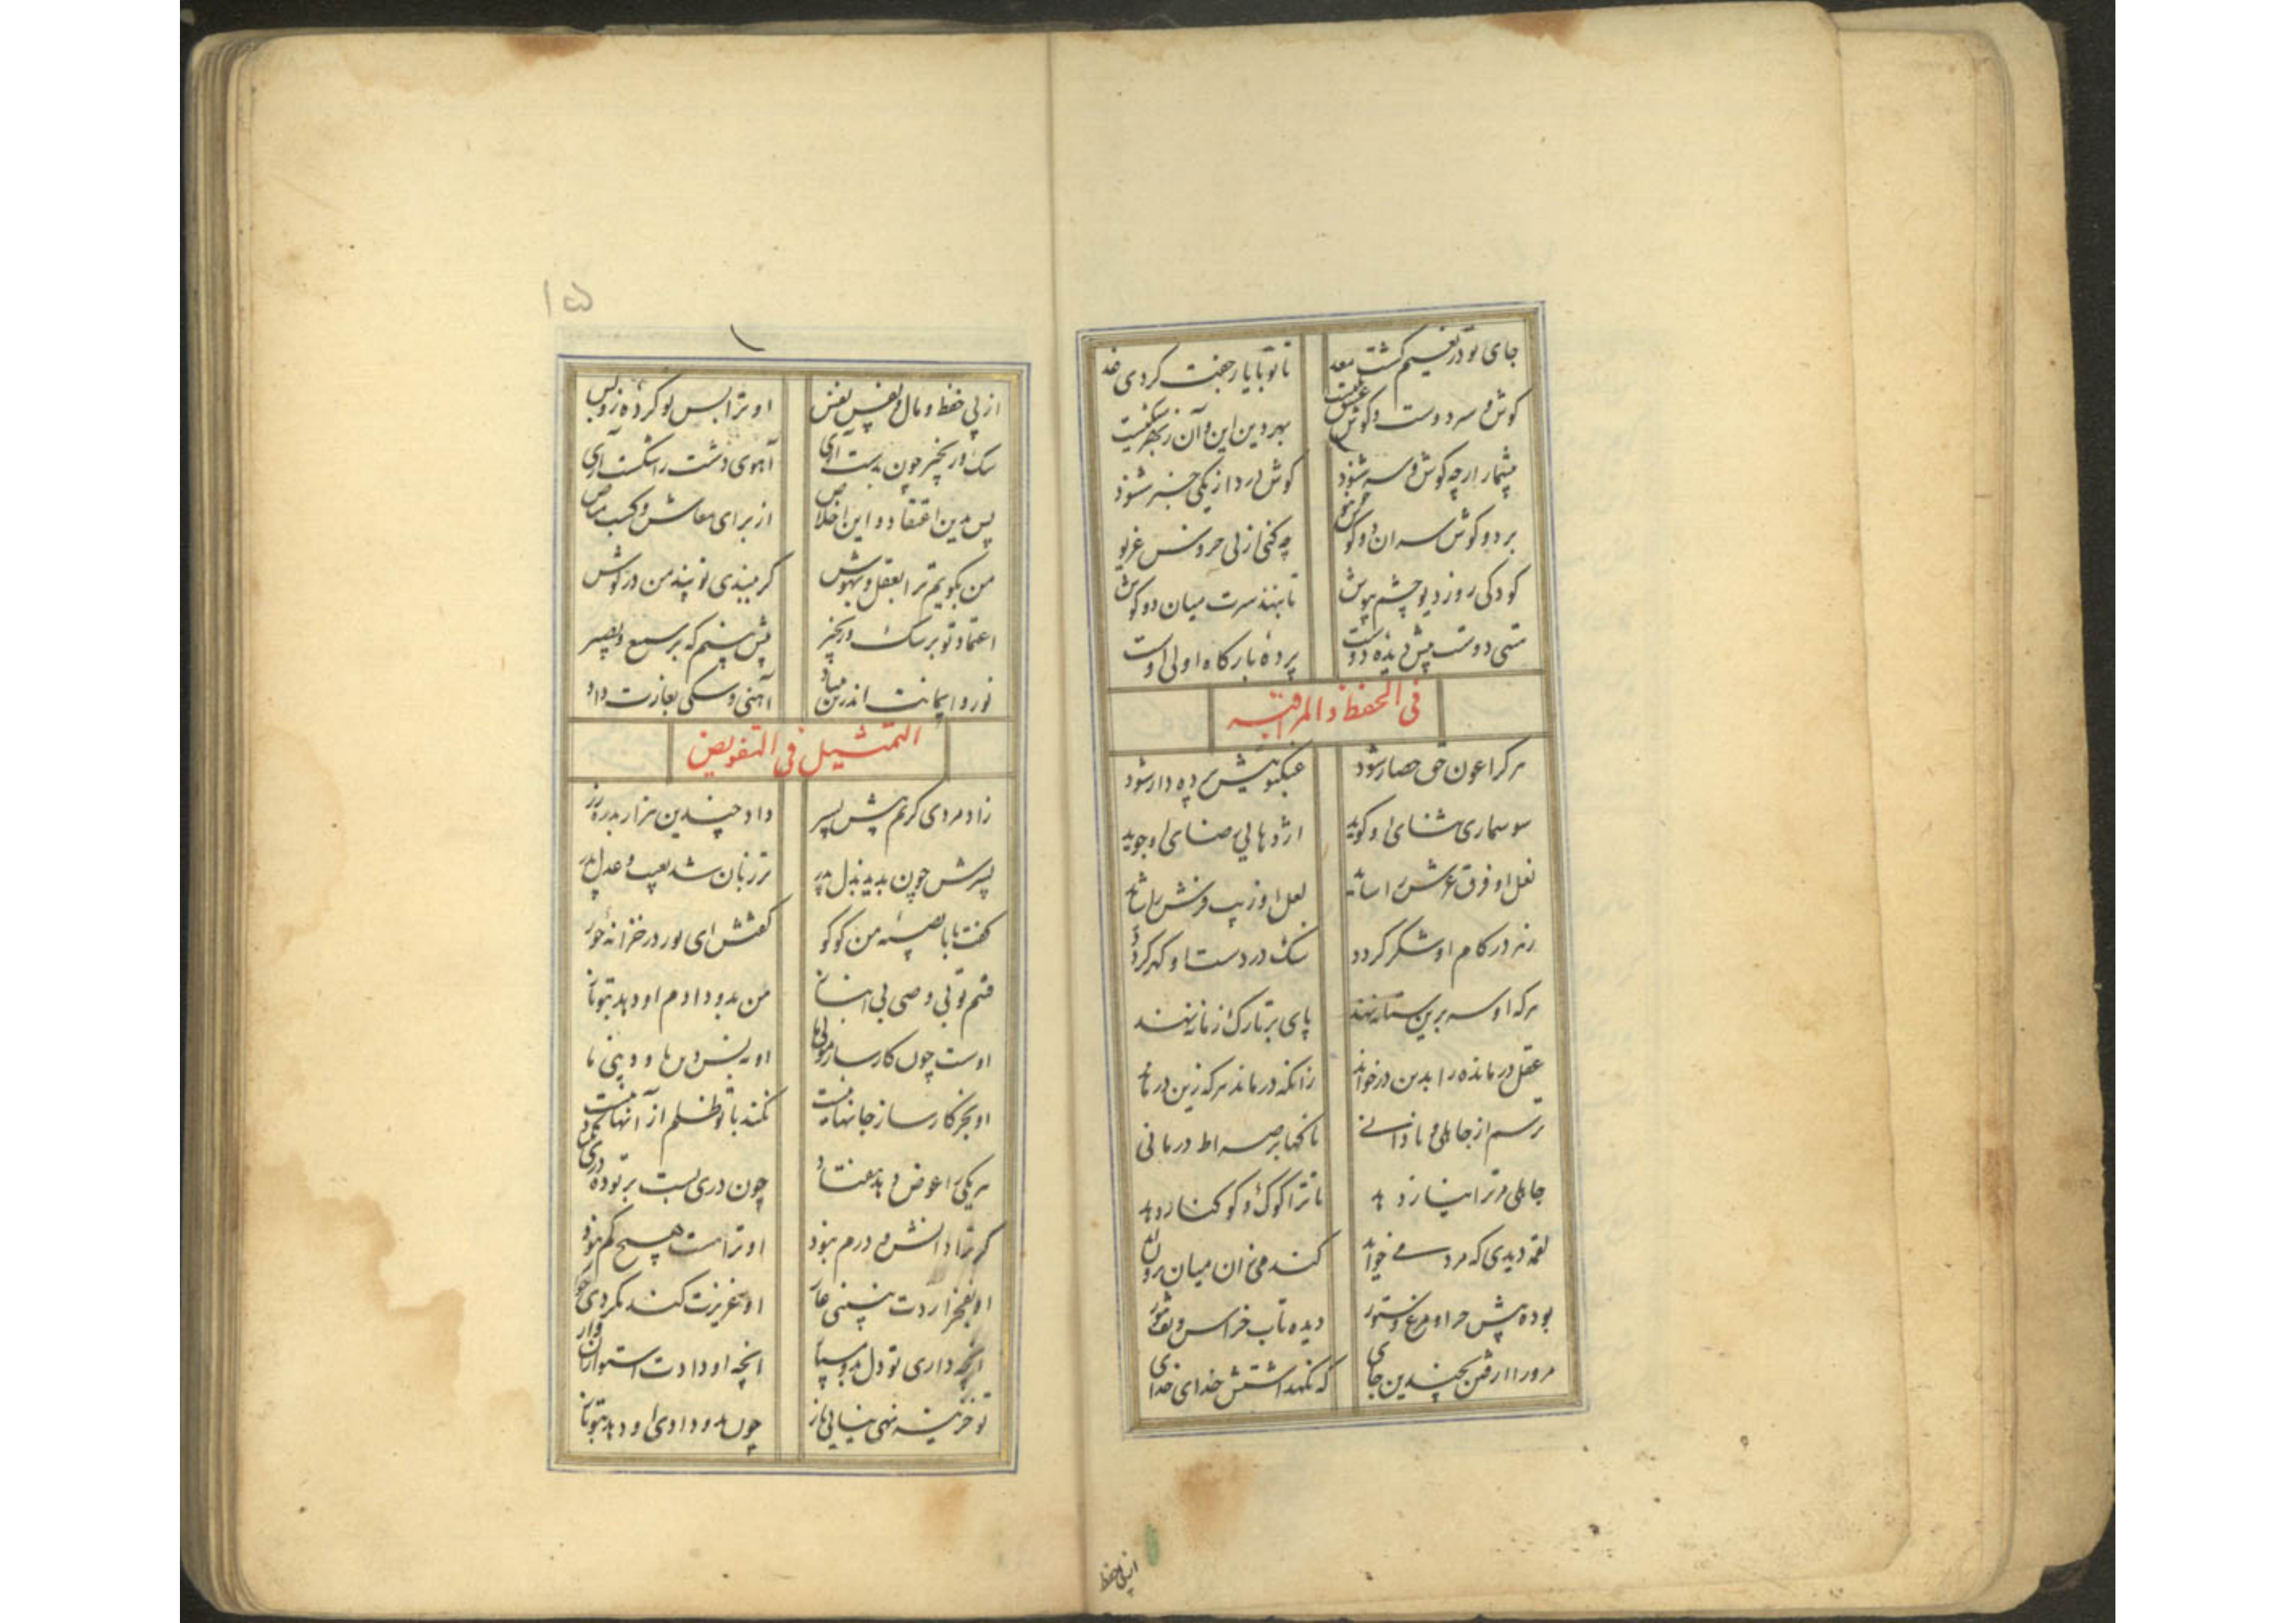 جای تو در نعیم گشت معد تا تو با یار جفت کردی خد
گوش و سر دوست و گوش عشق یکیست بهر دین این و آن ز بهر شکیست
بیشمار ارچه گوش و سر شنود گوش درد از یکی خبر شنود
بر دو گوش سر آن دو گوش چه کنی از پی خروش غریو
کودکی رو ز دیو چشم بپوش تا بنهد سرت میان دو گوش
پیش دیده دوست پرده بارگاه اولی اوست
فی الحفظ و المراقبه
هر کرا عون حق حصار شود عنکبوتیش پرده دار شود
سوسماری ثنای او گوید اژدهایی رضای او جوید
نعل او فرق عرش را ساید لعل او زیب فرش را شاید
زهر در کام او شکر گردد سنگ در دست او گهر گردد
هر که او سر برین ستانه نهد پای بر تارک زمانه نهد
عقل درمانده را بدین در خواند زانکه درماند هر که زین در ماند
ترسم از جاهلی و نادانی ناگهان بر صراط درمانی
جاهلی مر ترا بنار دهد تا ترا کوک و کوکنار دهد
لقمه دیدی که مرد می خواید گندمی زان میان برون آید
بوده پیش جراد و مرغ و ستور دیده تاب خراس و تف تنور
مر ورا از رقمن بچندین جای که نگهداشتش خدای خدای
از پی حفظ
۱۵
از پی حفظ و مال و نفس نفس او ترا بس تو کرده زو بس
سگ و زنجیر چون بدست آری آهوی دشت را شکست آری
پس بدین اعتقاد و این اخلاص از برای معاش و کسب مناص
من بگویم ترا بعقل و بهوش گر ببندی تو پند من در گوش
اعتماد تو بر سگ و زنجیر بیش بینم که بر سمیع و بصیر
نور ایمانت اندرین بنیاد آهنی و سگی بغارت داد
التمثیل فی التفویض
زاد مردی کریم پیش پسر داد چندین هزار بدره زر
پسرش چون بدید بذل پدر تر زبان شد بعیب و عدل پدر
گفت بابا نصیبه من کو گفتش ای پور در خزانه هو
قسم تو بی وصی بی انباز من بدو دادم او دهد بتو باز
اوست چون کارساز و مولی ما او نه بس دین ما و دنیی ما
او بجز کارساز جانها نیست نکند با تو ظلم از آنها نیست
هر یکی را عوض دهد هفتاد چون دری بست بر تو ده بگشاد
گر ترا دانش و درم نبود او ترا هست هیچ کم نبود
او بفخر آردت نبینی عار او عزیزت کند نگردی خوار
آنچه داری تو دل بدو مسپار آنچه او دادت استوار آن دار
تو خزینه نهی نیابی باز چون بدو دادی او دهد بتو باز